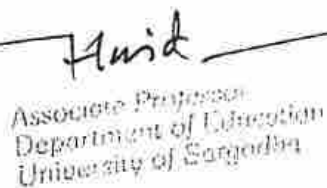 Associate Professor
Department of Education
University of Sargodha